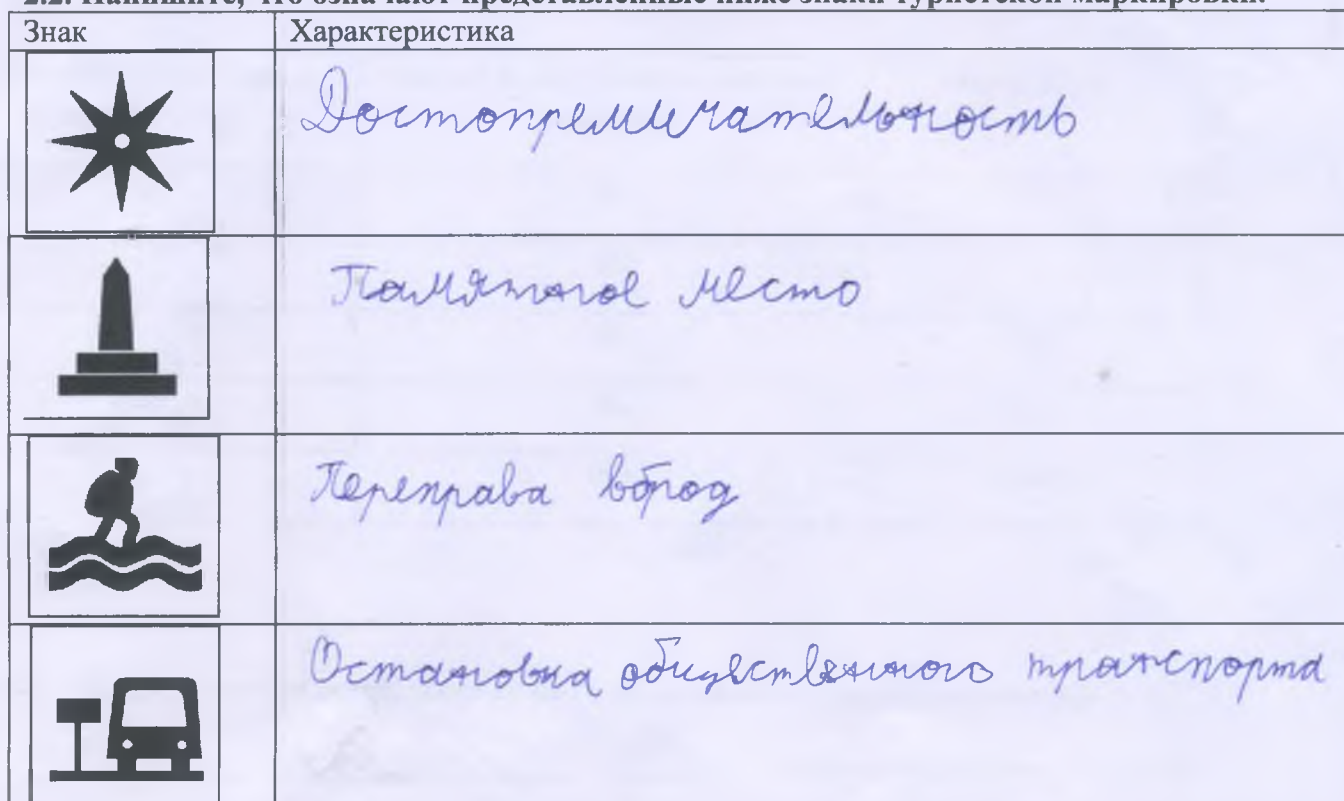 2.2. Напишите, что означают представленные ниже знаки туристской маркировки.
Знак Характеристика
Достопремичательность
Памятное место
Переправа вброд
Остановка общественного транспорта